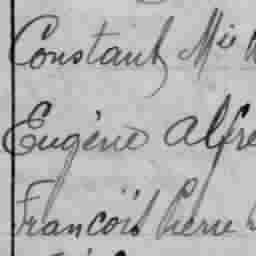 Constant Mis
Eugène Alfre
François Pierre